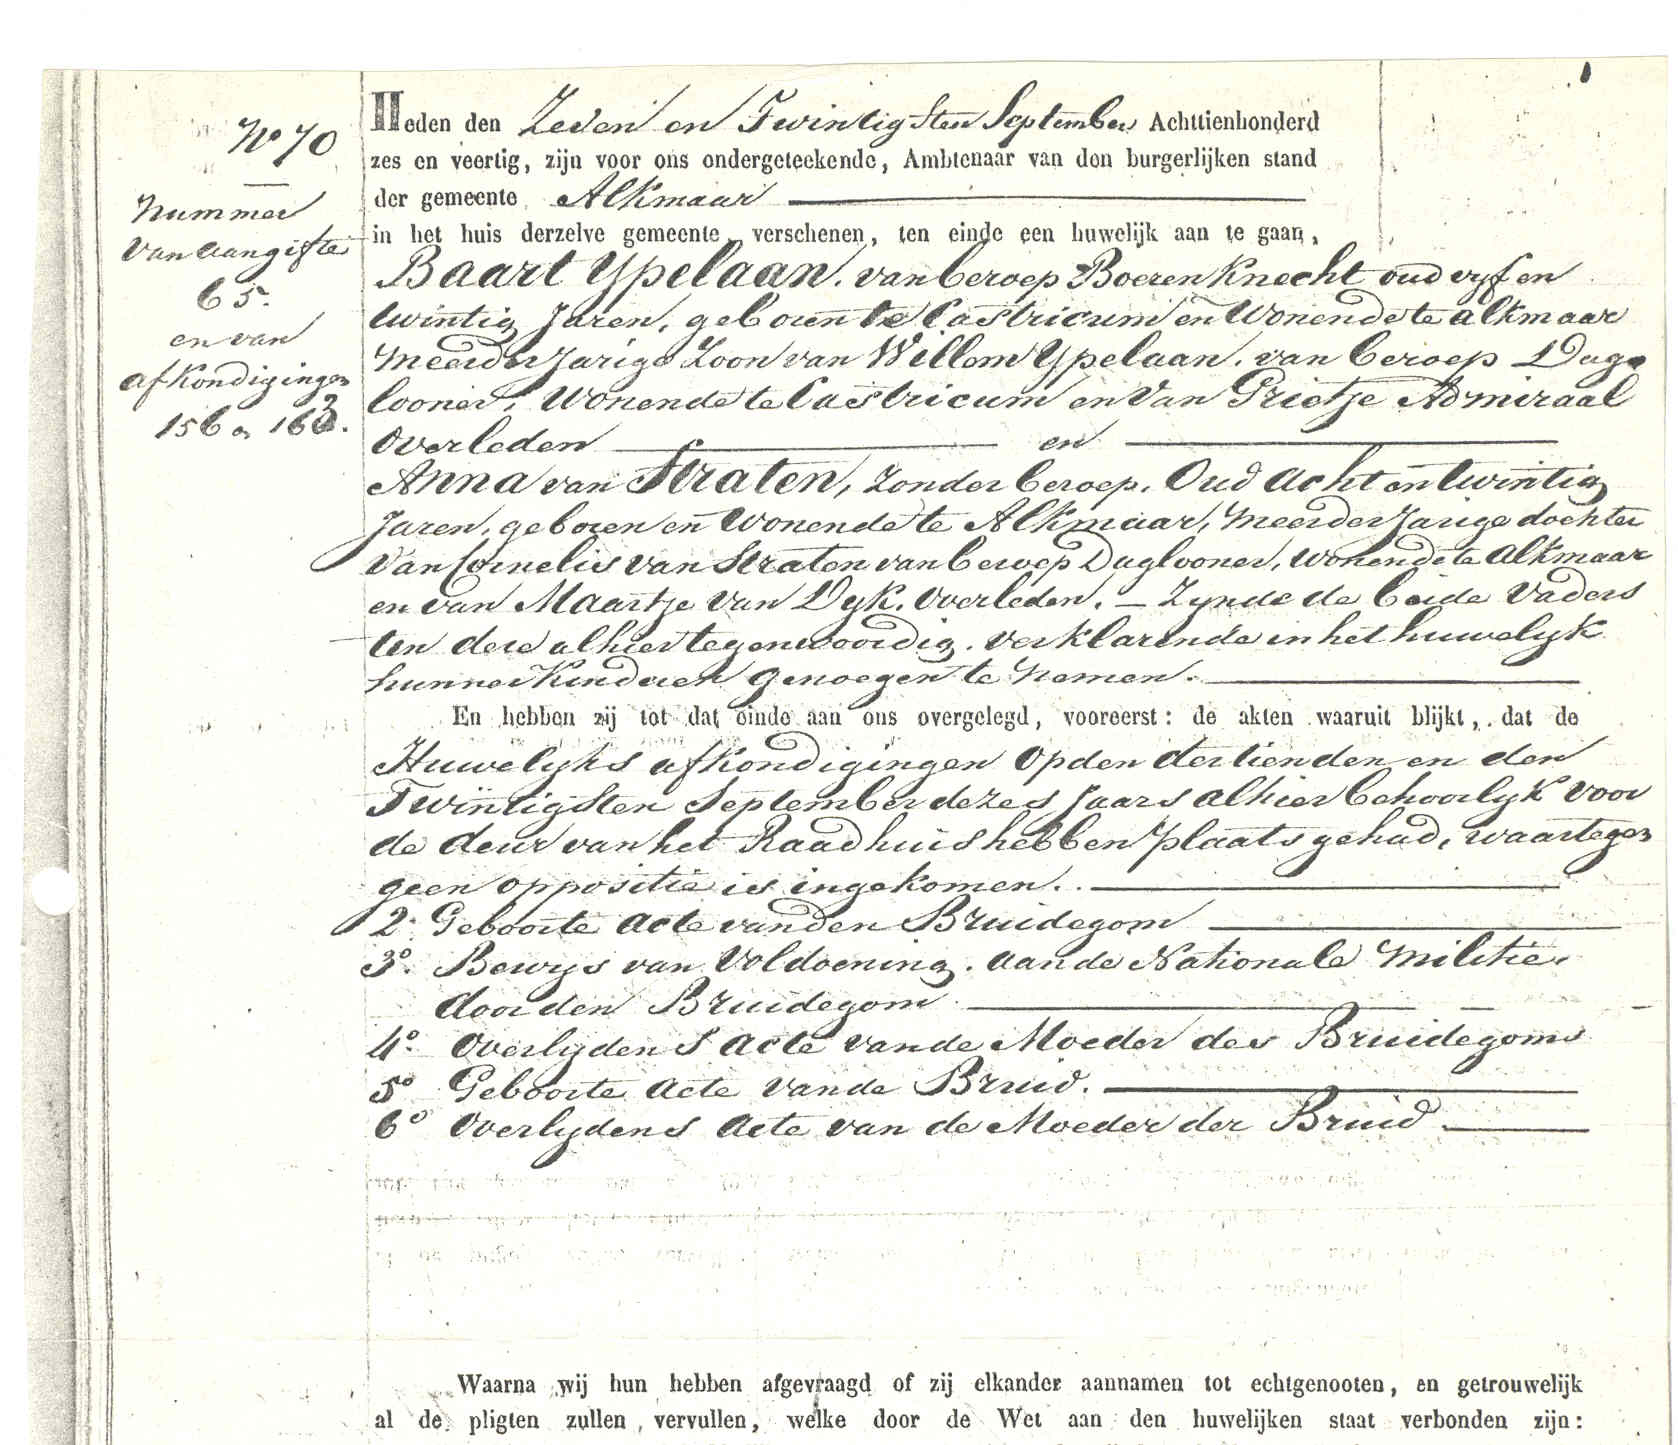 No 70
nummer
van aangifte
65.
en van
afkondigingen
156 en 163.
Heden den Zeven en Twintigsten September Achttienhonderd
zes en veertig, zijn voor ons ondergeteekende, Ambtenaar van den burgerlijken stand
der gemeente Alkmaar
in het huis derzelve gemeente verschenen, ten einde een huwelijk aan te gaan,
Baart Ypelaan. van beroep Boeren Knecht oud vyf en
twintig Jaren, geboren te Castricum en Wonende te alkmaar
meerderjarige Zoon van Willem Ypelaan. van beroep Dag-
looner, Wonende te Castricum en Van Grietje Admiraal
overleden en
Anna van Straten, zonder beroep. Oud Acht en twintig
Jaren, geboren en Wonende te Alkmaar, meerderjarige dochter
Van Cornelis van Straten van beroep Daglooner, wonende te alkmaar
en van Maartje Van Dyk. overleden. — Zynde de beide Vaders
ten deze alhier tegenwoordig. verklarende in het huwelyk
hunner Kinderen genoegen te nemen.
En hebben zij tot dat einde aan ons overgelegd, vooreerst: de akten waaruit blijkt, dat de
Huwelyks afkondigingen op den dertienden en den
Twintigsten September dezes Jaars alhier behoorlyk voor
de deur van het Raadhuis hebben plaats gehad, waartegen
geen oppositie is ingekomen.
2. Geboorte acte van den Bruidegom
3o. Bewys van Voldoening. aan de Nationale militie
door den Bruidegom
4o. Overlydens acte van de Moeder des Bruidegoms
5o Geboorte acte van de Bruid.
6o Overlydens acte van de Moeder der Bruid
Waarna wij hun hebben afgevraagd of zij elkander aannamen tot echtgenooten, en getrouwelijk
al de pligten zullen vervullen, welke door de Wet aan den huwelijken staat verbonden zijn: